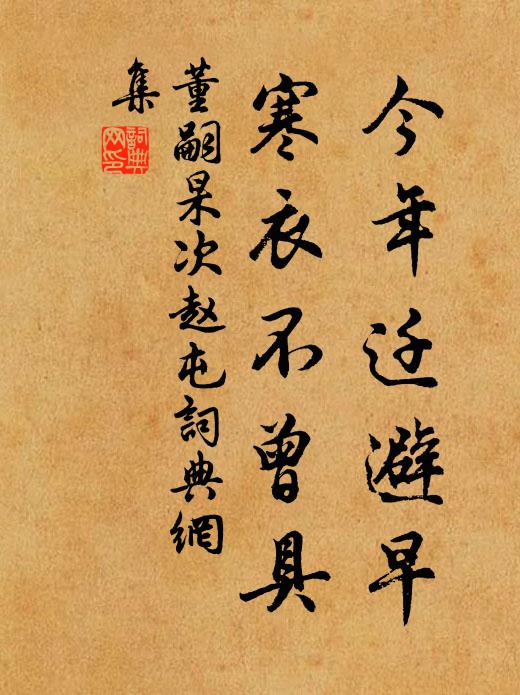 今年迁避早
寒衣不曾具
董嗣杲次赵屯詞典網
集
詞典網印